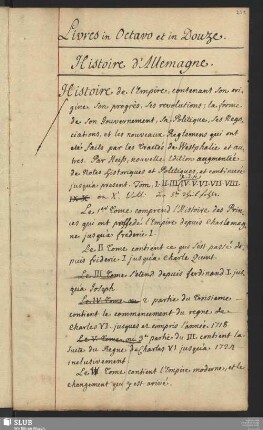 Livres in Octavo et in Douze.
Histoire d'Allemagne.
Histoire de l'Empire, contenant son ori-
gine son progrès, ses revolutions; la forme
de son Gouvernement, sa Politique, ses Nego-
ciations, et les nouveaux Reglemens qui ont
eté faits par les Traités de Westphalie et au-
tres. Par Heiss, nouvelle Edition augmentée
de Notes Historiques et Politiques, et continuée
jusqu'a present. Tom. I. II. III. IV. V. VI. VII. VIII.
IX. X. ou X. Voll.
Le 1er Tome comprend l'Histoire des Prin-
ces qui ont possedé l'Empire depuis Charlemag-
ne jusqu'a frederic I.
Le II Tome contient ce qui s'est passé de-
puis frideric I jusqu'a Charle Quint.
Le III Tome s'etend depuis ferdinand I. jus-
qu'a Joseph.
Le IV Tome ou 2 partie du Troisieme
contient le commencement du regne de
Charles VI. jusques et compris l'année 1718.
Le V Tome ou 3e partie du III. contient la
suite du Regne de Charles VI jusqu'a 1724
inclusivement.
Le Tome contient l'Empire moderne, et le
changement qui y est arrivé.
SLUB